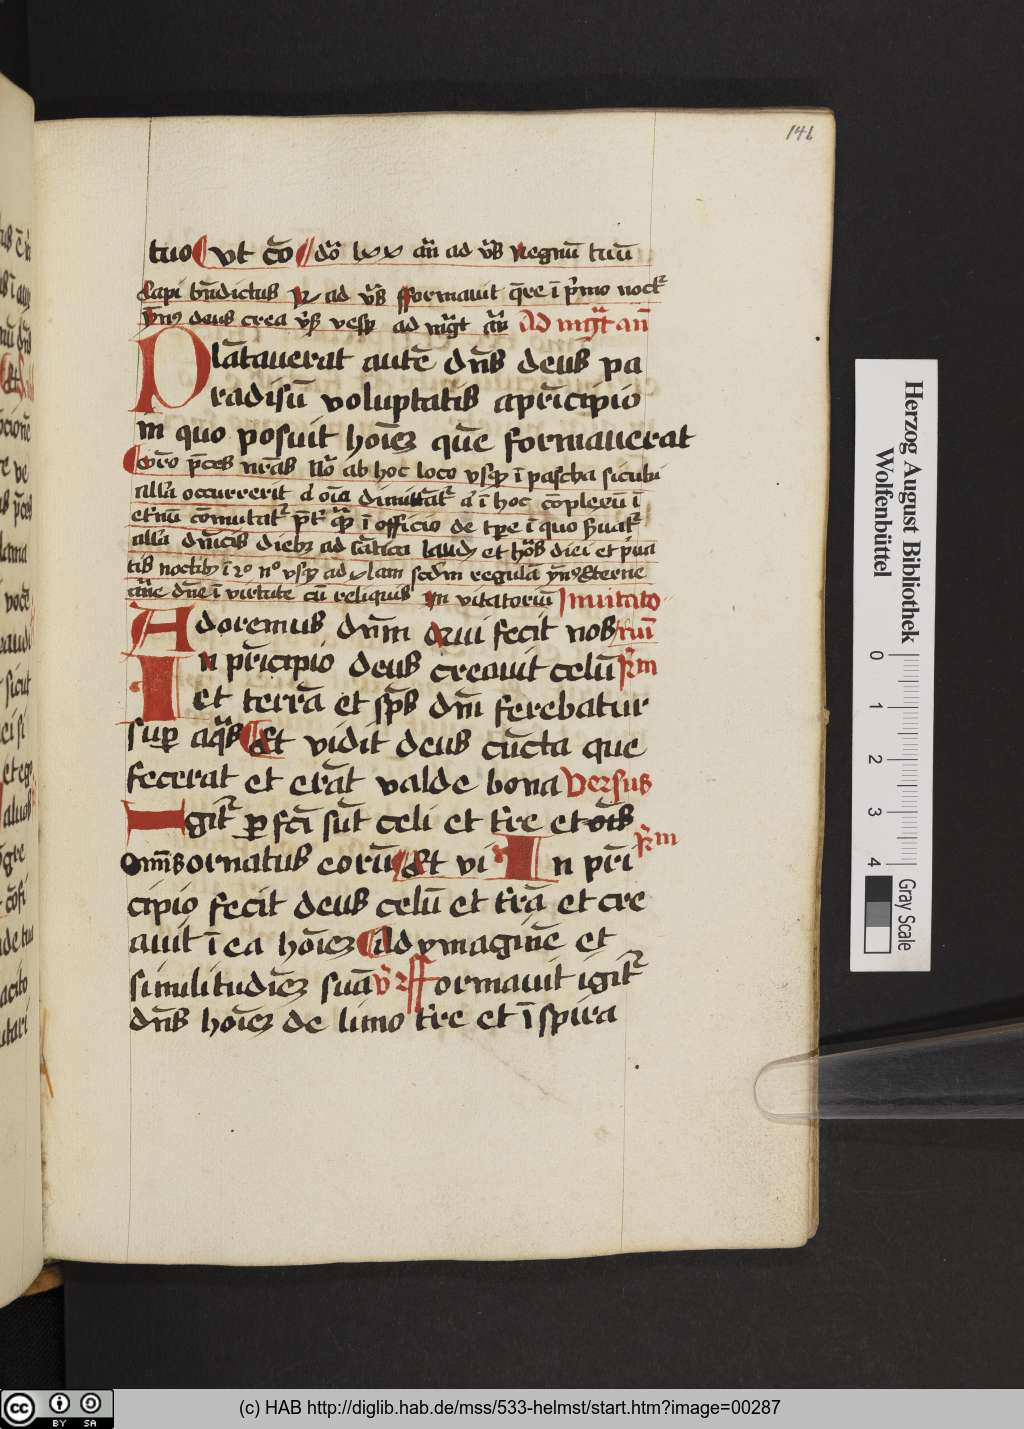 146
tuo vt c̄o d̄o lxx an̄ ad v̄s Regnū tuū
Capi bn̄dictus R ad v̄s fformauit q̄re ī p̄mo noct͛
deus crea v̄s vesp ad mḡt an̄ Ad mgt̄ an̄
Plātauerat autē dn̄s deus pa
radisū voluptatis a prīcipio
in quo posuit hoīeȝ quē formauerat
Oro p̄ces nr̄as No ab hoc loco vsqȝ ī pascha sicubi
all'a occurrerit oīa dimittat͛ ī hoc cōpletū ī
et'nū cōmutat͛ ī officio de tp̄e ī quo
all'a dn̄icis diebȝ ad cātica laudȝ et hōs diei et p̄ua
tis noctibȝ ī vsqȝ ad scd'm regulā Eterne
dn̄e ī virtute cū reliquis In vitatoriū Inuitato
Adoremus dn̄m qui fecit nos rium
In prīcipio deus creauit celū R̄m
et terrā et sp̄s dn̄i ferebatur
sup aq̄s Et vidit deus cūcta que
fecerat et erāt valde bona Versus
Igit͛ ꝑfc̄i sūt celi et t're et oīs
Omīs ornatus eorū Et vi In prī R̄m
cipio fecit deus celū et t'rā et cre
auit ī ea hoīeȝ Ad ymaginē et
similitudīeȝ suā v̄r fformauit igit͛
dn̄s hoīeȝ de limo t're et īspira
Herzog August Bibliothek
Wolfenbüttel
0 1 2 3 4
Gray Scale
cc BY SA
(c) HAB http://diglib.hab.de/mss/533-helmst/start.htm?image=00287